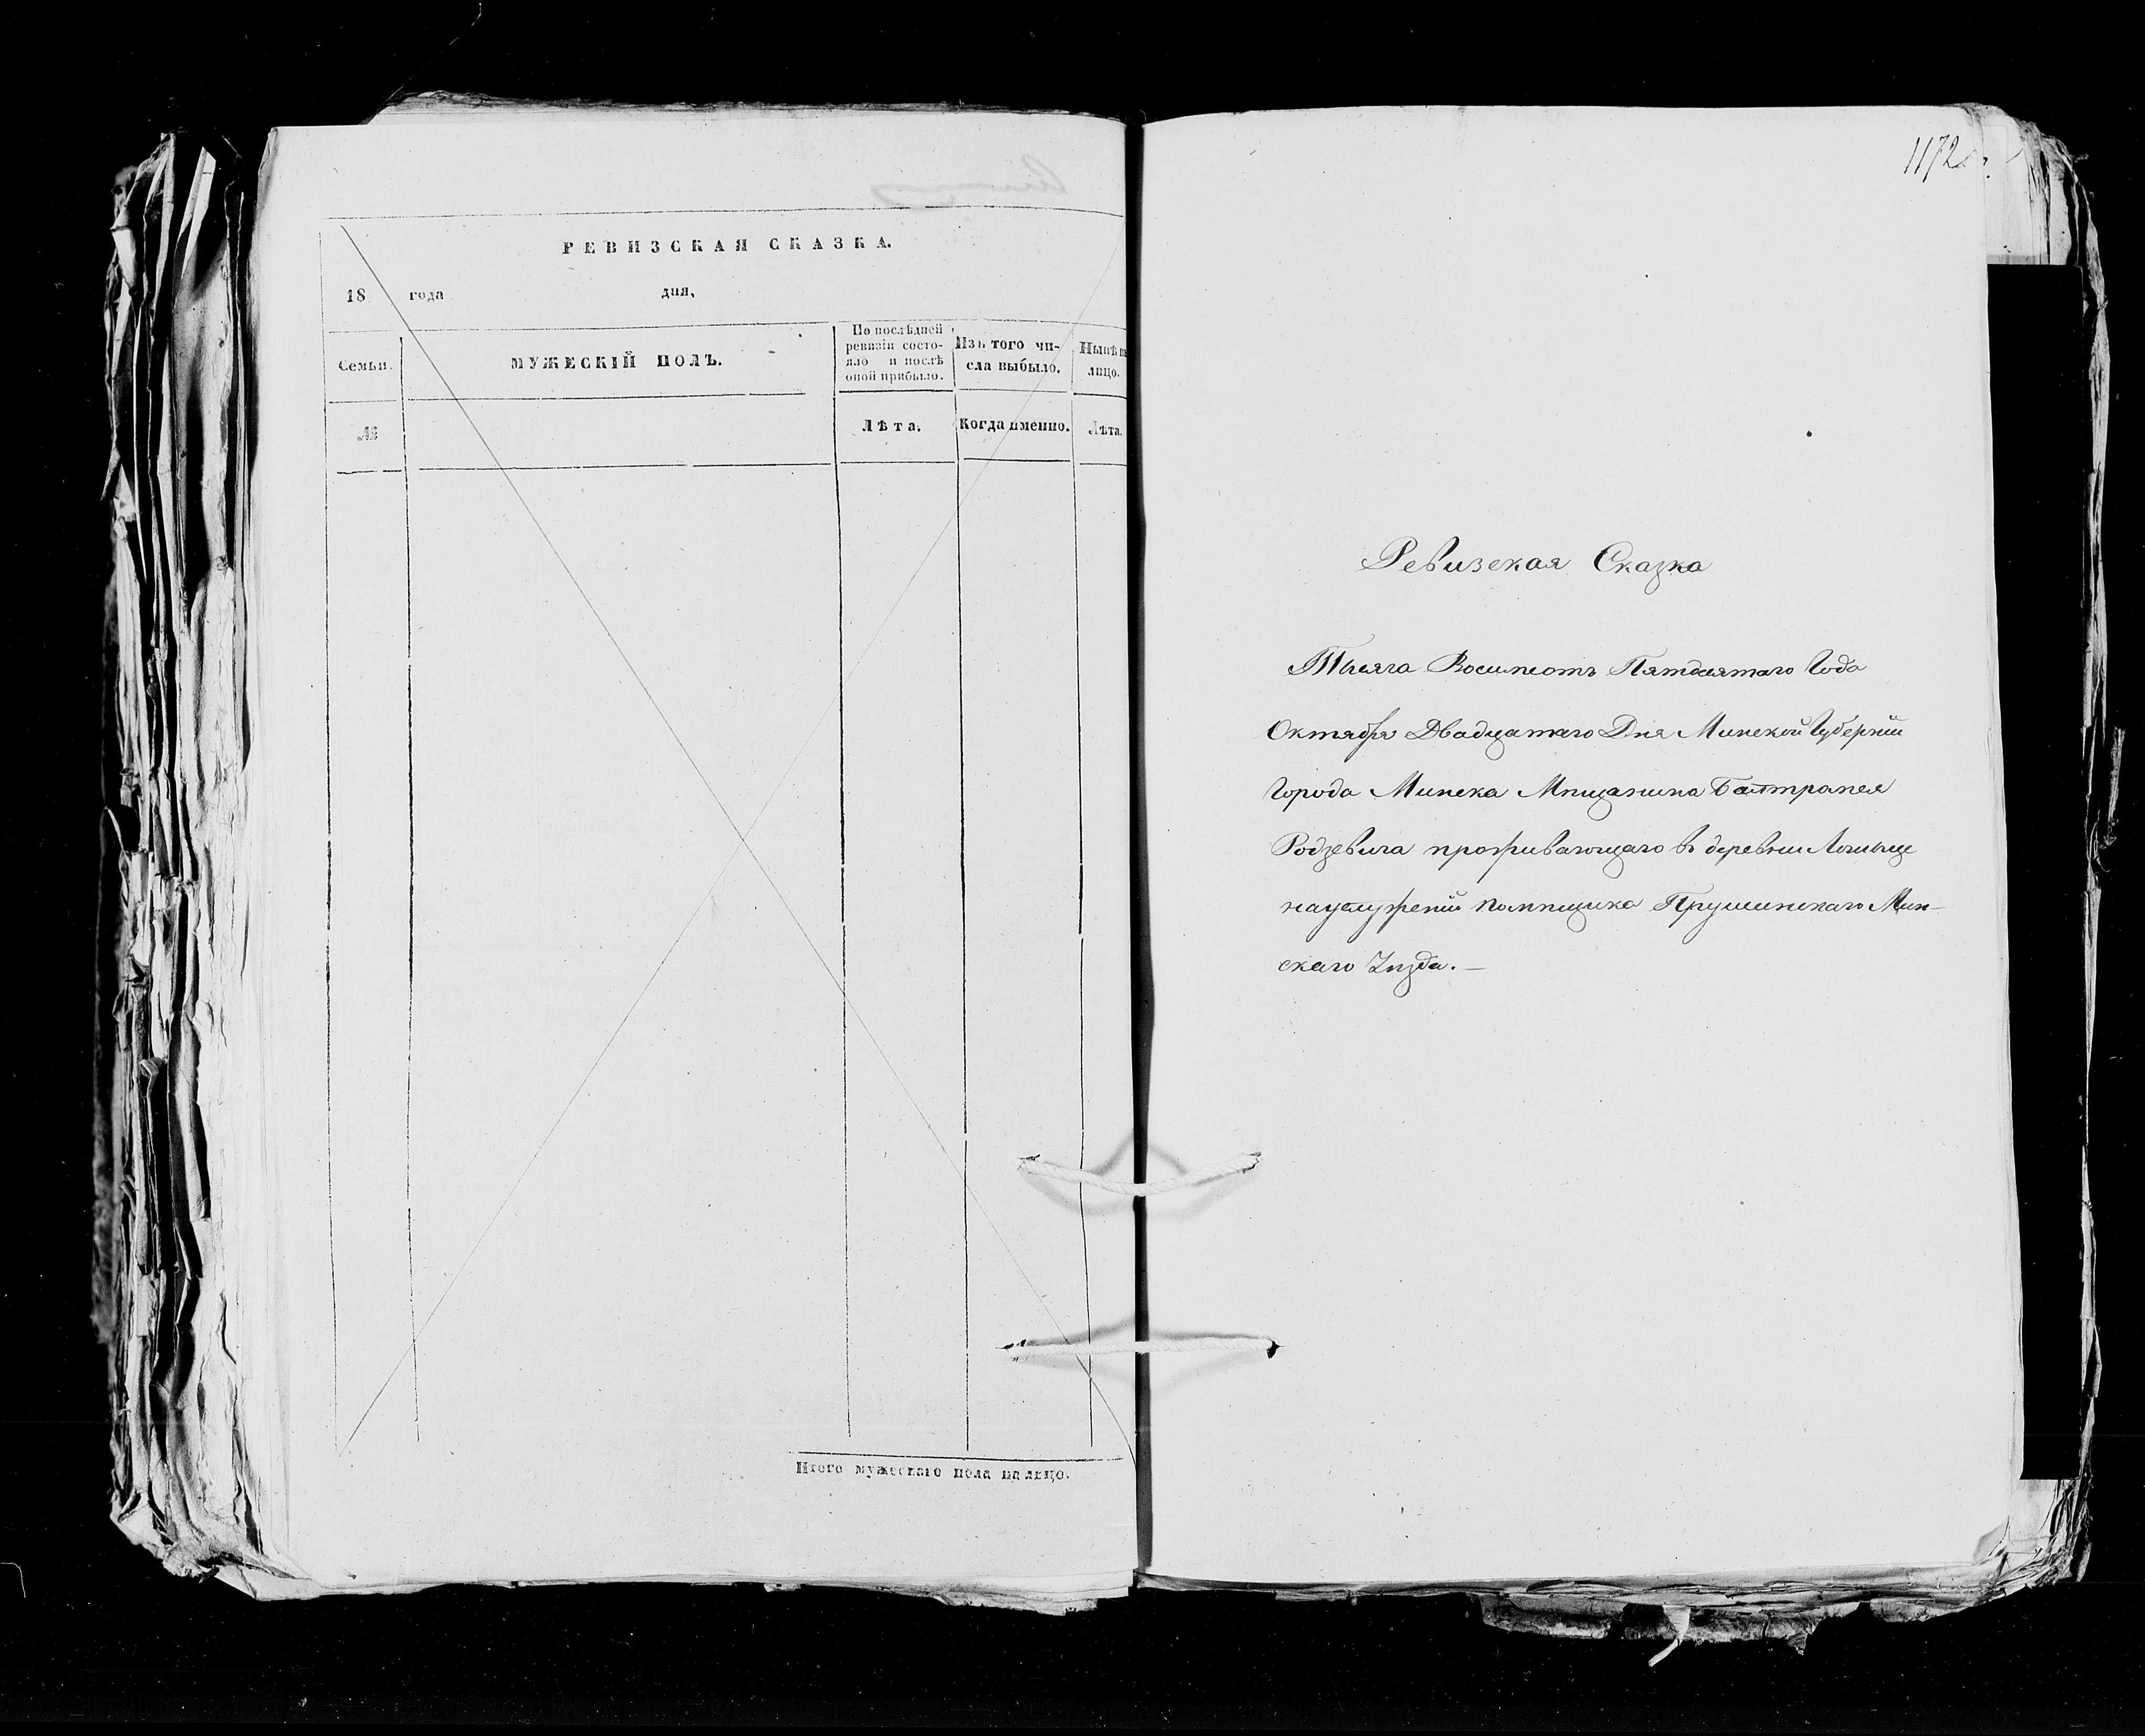 РЕВИЗСКАЯ СКАЗКА.
18 года дня,
Семьи.
МУЖЕСКІЙ ПОЛЪ.
По послѣдней
ревизіи состо-
яло и послѣ
оной прибыло.
Изъ того чи-
сла выбыло.
Нынѣ на
лицо.
№
Лѣта.
Когда именно.
Лѣта.
Итого мужескаго пола на лицо.
1172
Ревизская Сказка
Тысяча Восимсотъ Пятдсятаго Года
Октября Двадцатаго Дня Минской Губерніи
Города Минска Мпщанина Балтрапея
Родзевича проживающаго въ деревни Лошыце
науслуженіи помпщика Прушинскаго Мин-
скаго Упзда.—